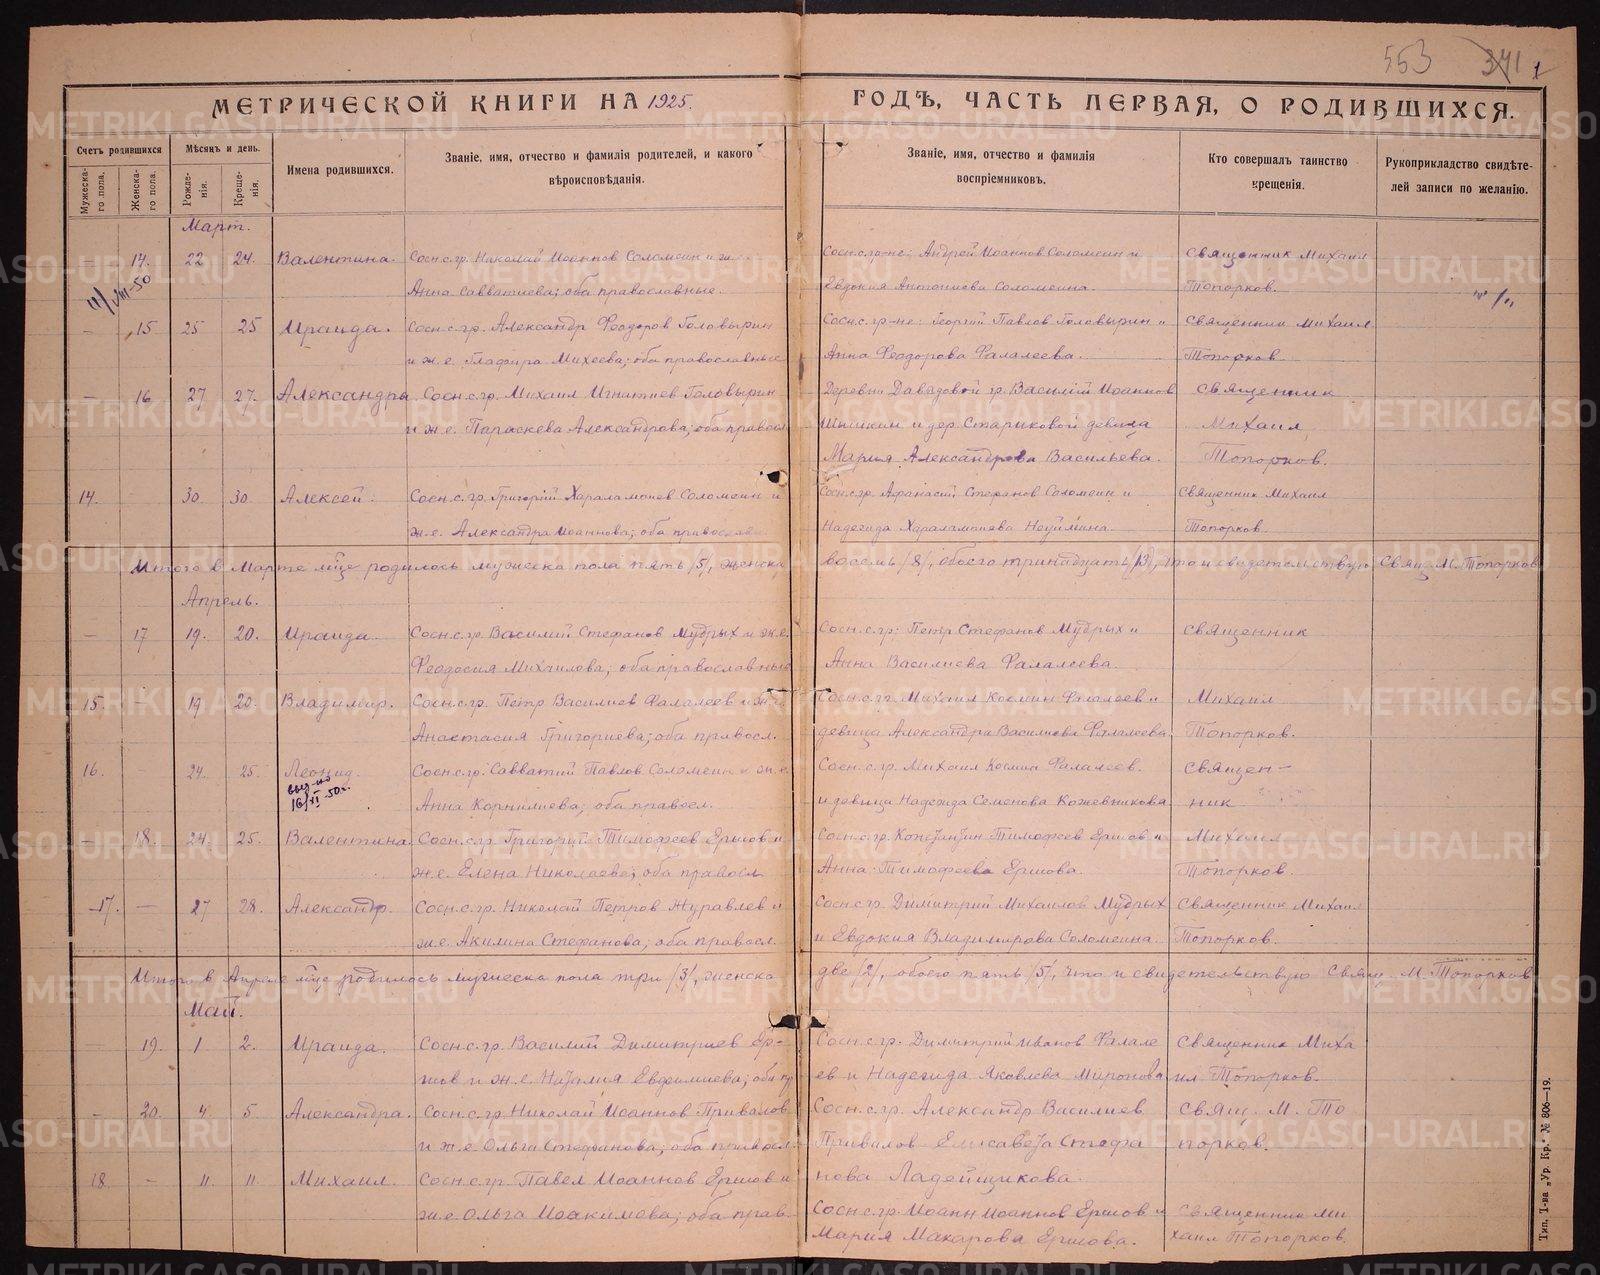 553 371 1
МЕТРИЧЕСКОЙ КНИГИ НА 1925. ГОДЪ, ЧАСТЬ ПЕРВАЯ, О РОДИВШИХСЯ.
Счетъ родившихся
Мѣсяцъ и день.
Имена родившихся.
Званіе, имя, отчество и фамилія родителей, и какого
вѣроисповѣданія.
Званіе, имя, отчество и фамилія
воспріемниковъ.
Кто совершалъ таинство
крещенія.
Рукоприкладство свидѣте-
лей записи по желанію.
Мужеска-
го пола.
Женска-
го пола.
Рожде-
нія.
Креще-
нія.
Март.
— 14. 22 24. Валентина. Сосн.с.гр. Николай Иоаннов Соломеин и ж.е.
Анна Савватиева; оба православные.
Андрей Иоаннов Соломеин и
Евдокия Антониева Соломеина.
Священник Михаил
Топорков.
— 15 25 25 Ираида. Сосн.с.гр. Александр Феодоров Головырин
и ж.е. Глафира Михеева; оба православные
Сосн.с.гр-не: Георгий Павлов Головырин и
Анна Феодорова Фалалеева.
Священник Михаил
Топорков
— 16 27 27. Александра Сосн.с.гр. Михаил Игнатиев Головырин
и ж.е. Параскева Александрова; оба правосл.
Деревни Давыдовой гр. Василий Иоаннов
Шишкин и дер. Стариковой девица
Мария Александрова Васильева.
Священник
Михаил
Топорков.
14. 30. 30. Алексей. Сосн.с.гр. Григорий Харалампиев Соломеин и
ж.е. Александра Иоаннова; оба православн
Сосн.с.гр. Афанасий Стефанов Соломеин и
Надежда Харалампиева Неуймина.
Священник Михаил
Топорков.
Итого в Марте м-це родилось мужеска пола пять /5/, женска восемь /8/, обоего тринадцать /13/, что и свидетельствую Свящ. М. Топорков
Апрель.
— 17 19. 20. Ираида. Сосн.с.гр. Василий Стефанов Мудрых и ж.е.
Феодосия Михаилова; оба православные
Сосн.с.гр: Петр Стефанов Мудрых и
Анна Василиева Фалалеева.
Священник
15. — 19 20. Владимир. Сосн.с.гр. Петр Василиев Фалалеев и ж.е.
Анастасия Григориева; оба правосл.
Сосн.с.гр. Михаил Космин Фалалеев и
девица Александра Василиева Фалалеева.
Михаил
Топорков.
16. 24. 25. Леонид. Сосн.с.гр. Савватий Павлов Соломеин и ж.е.
выд-но
16/XI-50г.
Анна Корнилиева; оба правосл.
Сосн.с.гр. Михаил Космин Фалалеев.
и девица Надежда Семенова Кожевникова
Священ-
ник
— 18. 24. 25. Валентина. Сосн.с.гр. Григорий Тимофеев Ершов и
ж.е. Елена Николаева; оба правосл
Сосн.с.гр. Тимофеев Ершов и
Анна Тимофеева Ершова.
Михаил
Топорков.
17. — 27 28. Александр. Сосн.с.гр. Николай Петров Журавлев и
ж.е. Акилина Стефанова; оба правосл.
Сосн.с.гр. Димитрий Михаилов Мудрых
и Евдокия Владимирова Соломеина.
Священник Михаил
Топорков.
Итого в Апреле м-це родилось мужеска пола три /3/, женска две /2/, обоего пять /5/, что и свидетельствую Свящ. М. Топорков
Май.
— 19. 1 2. Ираида. Сосн.с.гр. Василий Димитриев Ер-
шов и ж.е. Наталия Евфимиева; оба пр
Сосн.с.гр. Димитрий Иванов Фалале
ев и Надежда Яковлева Миронова
Священник Миха
ил Топорков.
— 20. 4. 5. Александра. Сосн.с.гр. Николай Иоаннов Привалов
и ж.е. Ольга Стефанова; оба правосл.
Сосн.с.гр. Александр Василиев
Привалов Елисавета Стефа
нова Ладейщикова.
Свящ. М. То
порков.
18. — 11. 11. Михаил. Сосн.с.гр. Павел Иоаннов Ершов и
ж.е. Ольга Иоакимова; оба прав.
Сосн.с.гр. Иоанн Иоаннов Ершов и
Мария Макарова Ершова.
Священник Ми
хаил Топорков.
Тип. Т-ва „Ур. Кр." № 806—19.
METRIKI.GASO-URAL.RU